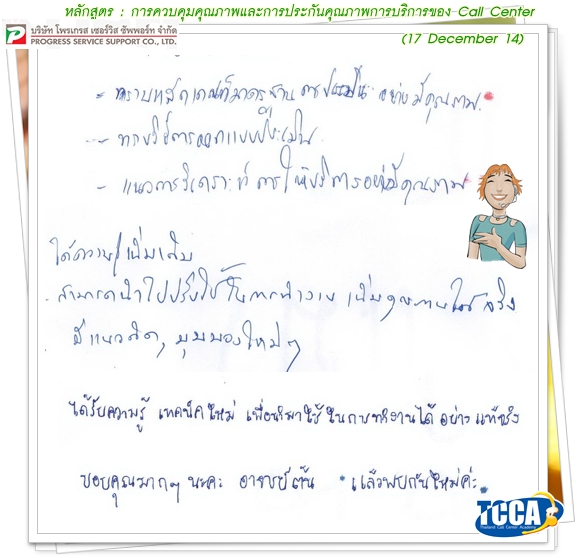 หลักสูตร : การควบคุมคุณภาพและการประกันคุณภาพการบริการของ Call Center
P
บริษัท โพรเกรส เซอร์วิส ซัพพอร์ท จำกัด
PROGRESS SERVICE SUPPORT CO., LTD.
(17 December 14)
- ทราบหลักเกณฑ์มาตรฐานการประเมิน อย่างมีคุณภาพ
- ทราบวิธีการออกแบบประเมิน
- แนวการวิเคราะห์ การให้บริการอย่างมีคุณภาพ
ได้ความรู้เพิ่มเติม
- สามารถนำไปปรับใช้ในการทำงาน เพิ่มคุณภาพได้จริง
มีแนวคิด, มุมมองใหม่ๆ
ได้รับความรู้ เทคนิคใหม่ เพื่อนำมาใช้ในการทำงานได้อย่างแท้จริง
ขอบคุณมากๆ นะคะ อาจารย์ต้น แล้วพบกันใหม่ค่ะ
TCCA
Thailand Call Center Academy